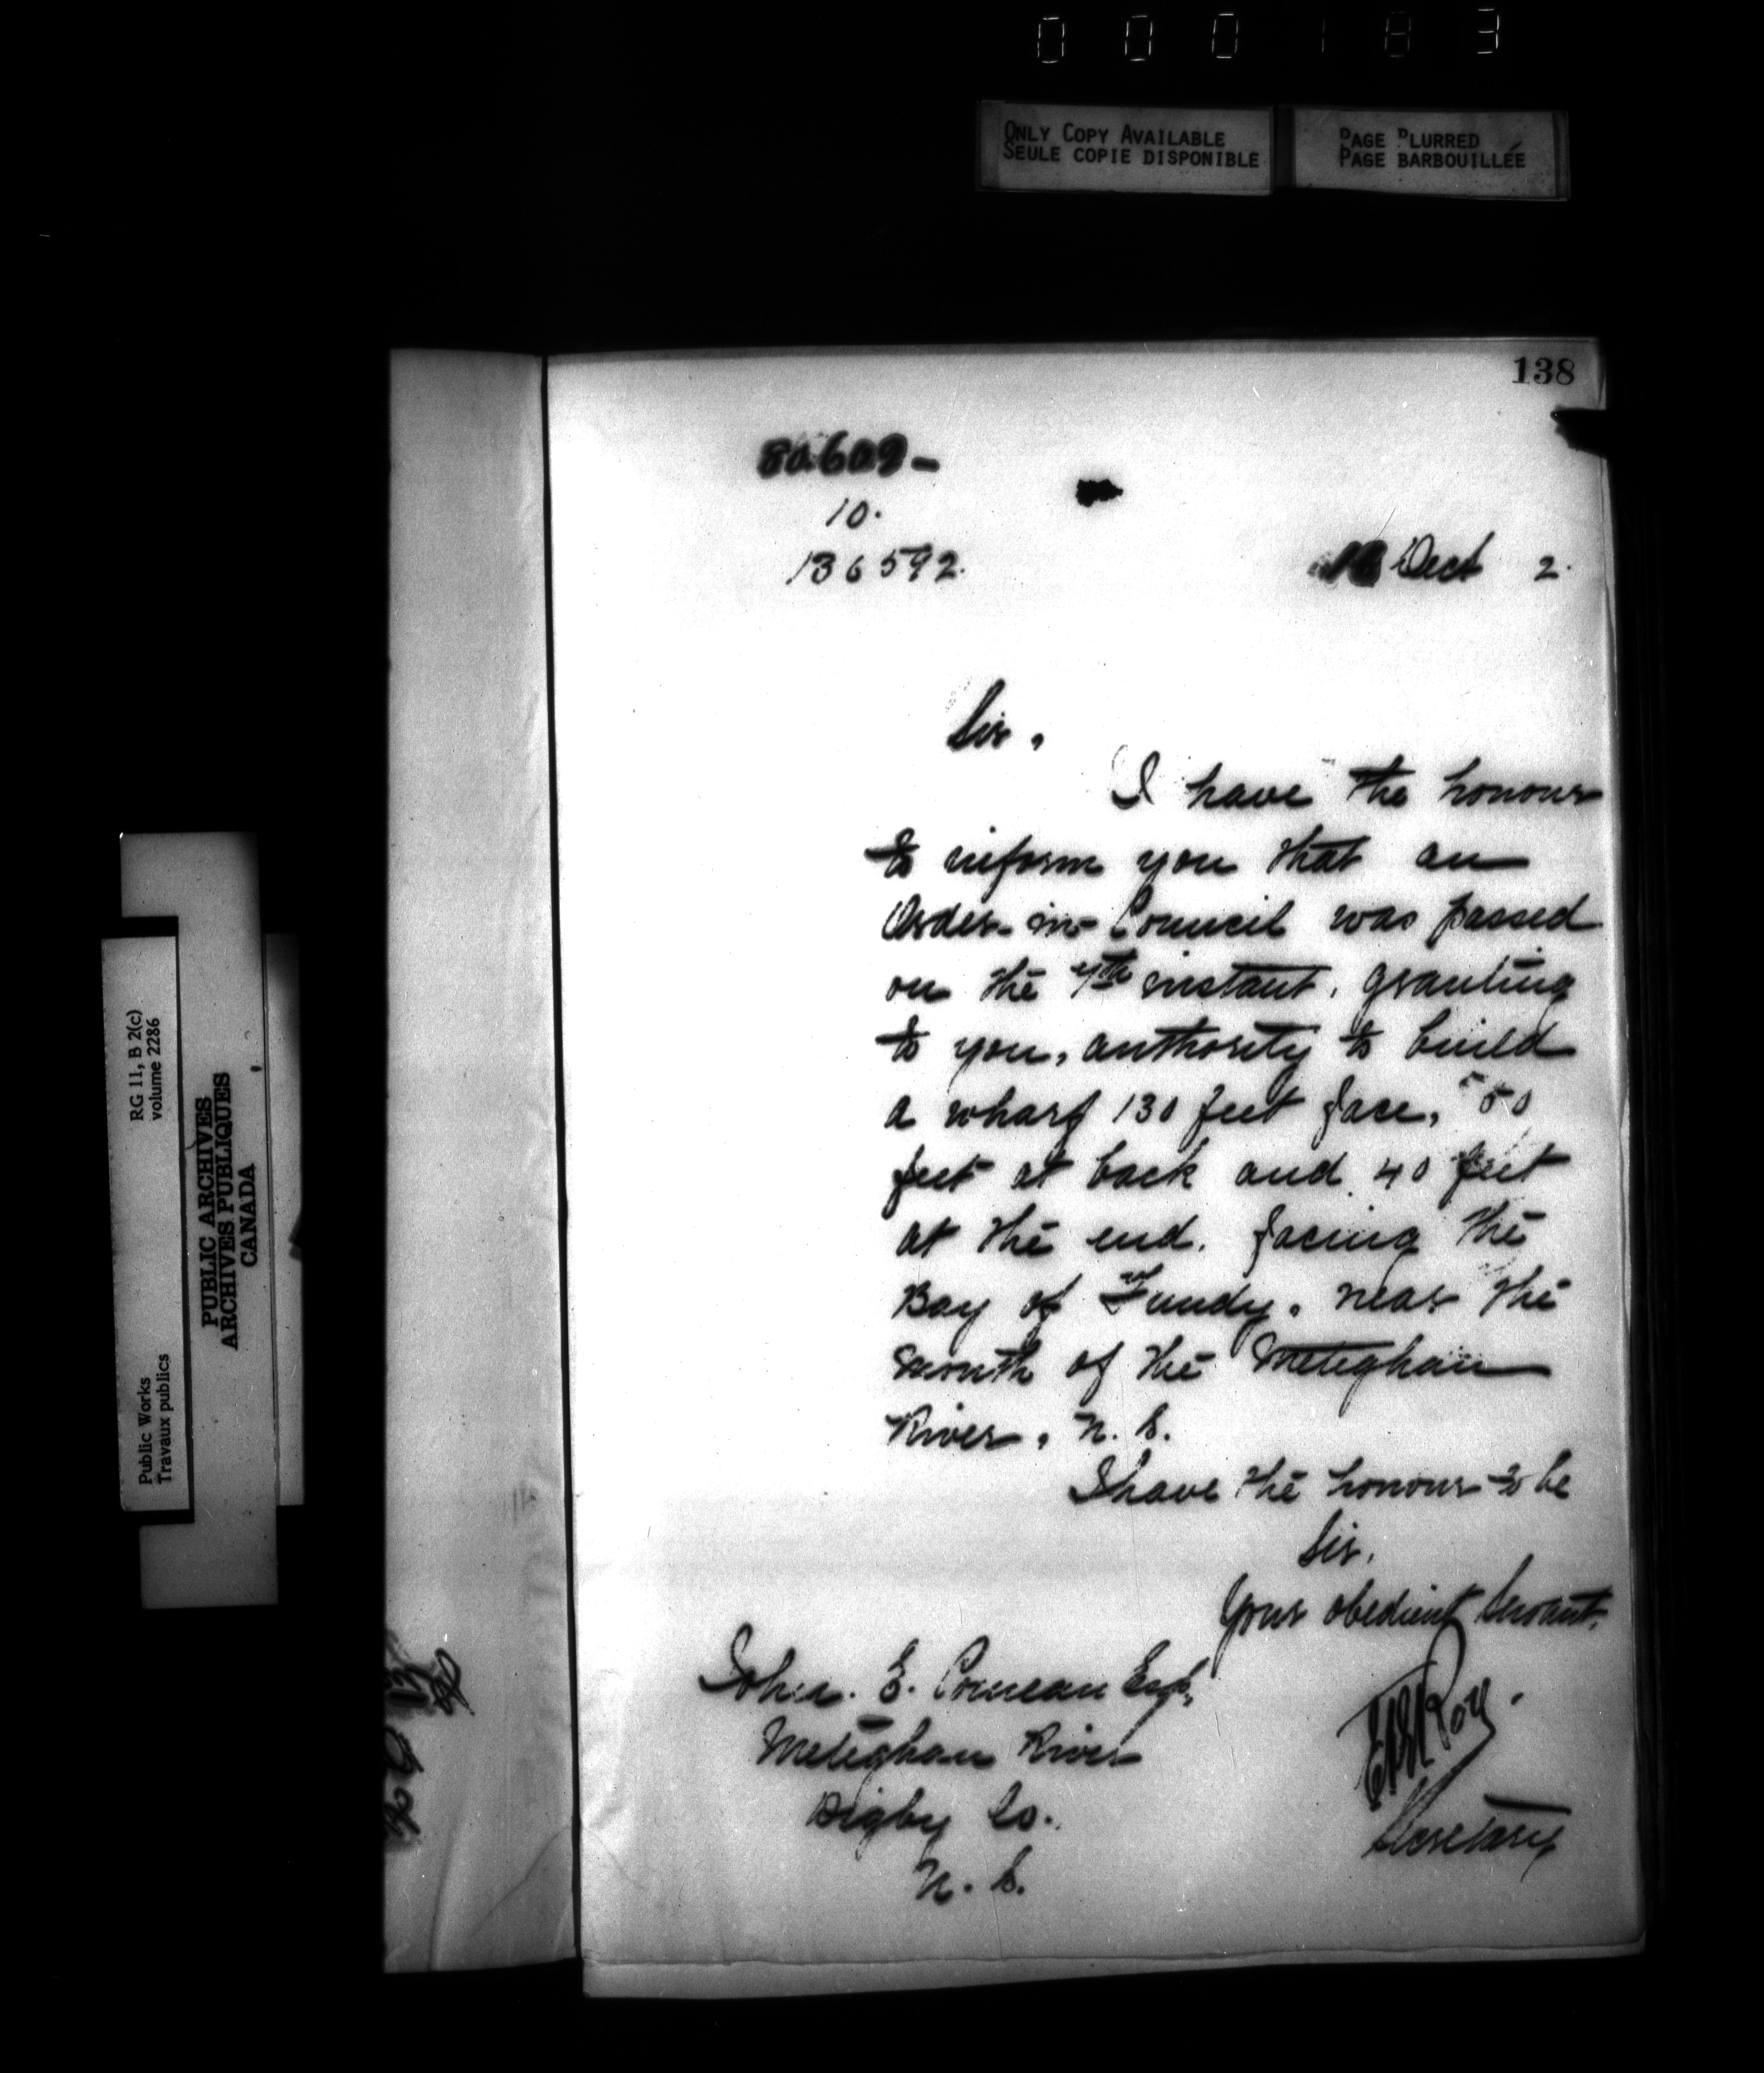 000183
ONLY COPY AVAILABLE
SEULE COPIE DISPONIBLE
PAGE BLURRED
PAGE BARBOUILLÉE
138
80609-
10.
136592.
Dect 2.
Sir,
I have the honour
to inform you that an
Order-in-Council was passed
on the instant, granting
to you, authority to build
a wharf 130 feet face, 50
feet at back and 40 feet
at the end, facing the
Bay of Fundy, near the
mouth of the Meteghan
River, N. S.
I have the honour to be
Sir,
Your obedient Servant,
EFE Roy.
Secretary
John. E. Comeau Esq,
Meteghan River
Digby Co.
N. S.
RG 11, B 2(c)
volume 2286
PUBLIC ARCHIVES
ARCHIVES PUBLIQUES
CANADA
Public Works
Travaux publics